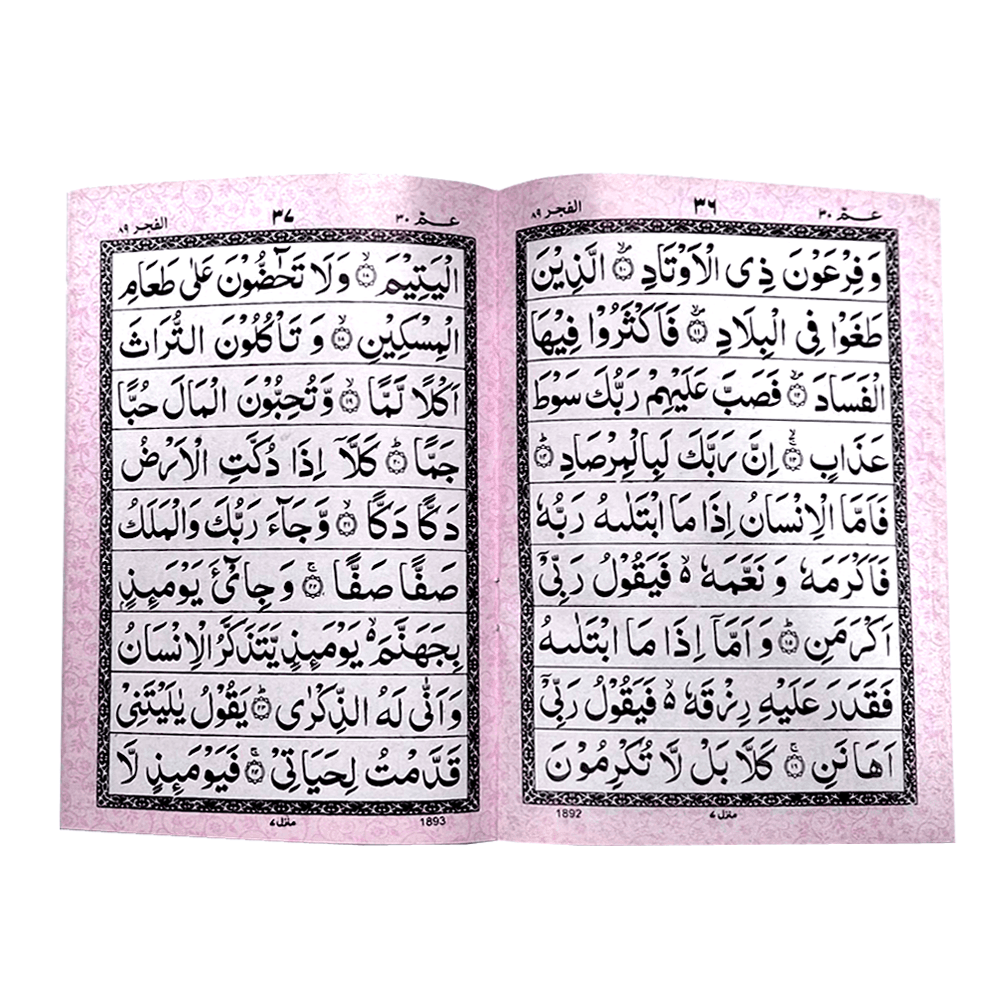 عمّ ٣٠ ٣٦ الفجر ٨٩
وَفِرْعَوْنَ ذِی الْاَوْتَادِ ۙ﴿۱۰﴾ الَّذِیْنَ
طَغَوْا فِی الْبِلَادِ ۙ﴿۱۱﴾ فَاَكْثَرُوْا فِیْهَا
الْفَسَادَ ۙ﴿۱۲﴾ فَصَبَّ عَلَیْهِمْ رَبُّكَ سَوْطَ
عَذَابٍ ۚۙ﴿۱۳﴾ اِنَّ رَبَّكَ لَبِالْمِرْصَادِ ؕ﴿۱۴﴾
فَاَمَّا الْاِنْسَانُ اِذَا مَا ابْتَلٰىهُ رَبُّهٗ
فَاَكْرَمَهٗ وَ نَعَّمَهٗ ۙ۬ فَیَقُوْلُ رَبِّیْۤ
اَكْرَمَنِ ؕ﴿۱۵﴾ وَ اَمَّاۤ اِذَا مَا ابْتَلٰىهُ
فَقَدَرَ عَلَیْهِ رِزْقَهٗ ۙ۬ فَیَقُوْلُ رَبِّیْۤ
اَهَانَنِ ۚ﴿۱۶﴾ كَلَّا بَلْ لَّا تُكْرِمُوْنَ
منزل ٧ 1892
عمّ ٣٠ ٣٧ الفجر ٨٩
الْیَتِیْمَ ۙ﴿۱۷﴾ وَلَا تَحٰٓضُّوْنَ عَلٰی طَعَامِ
الْمِسْكِیْنِ ۙ﴿۱۸﴾ وَ تَاْكُلُوْنَ التُّرَاثَ
اَكْلًا لَّمًّا ۙ﴿۱۹﴾ وَّ تُحِبُّوْنَ الْمَالَ حُبًّا
جَمًّا ؕ﴿۲۰﴾ كَلَّاۤ اِذَا دُكَّتِ الْاَرْضُ
دَكًّا دَكًّا ۙ﴿۲۱﴾ وَّجَآءَ رَبُّكَ وَالْمَلَكُ
صَفًّا صَفًّا ۚ﴿۲۲﴾ وَ جِایْٓءَ یَوْمَىِٕذٍۭ
بِجَهَنَّمَ ۙ۬ یَوْمَىِٕذٍ یَّتَذَكَّرُ الْاِنْسَانُ
وَاَنّٰی لَهُ الذِّكْرٰی ؕ﴿۲۳﴾ یَقُوْلُ یٰلَیْتَنِیْ
قَدَّمْتُ لِحَیَاتِیْ ۚ﴿۲۴﴾ فَیَوْمَىِٕذٍ لَّا
1893 منزل ٧